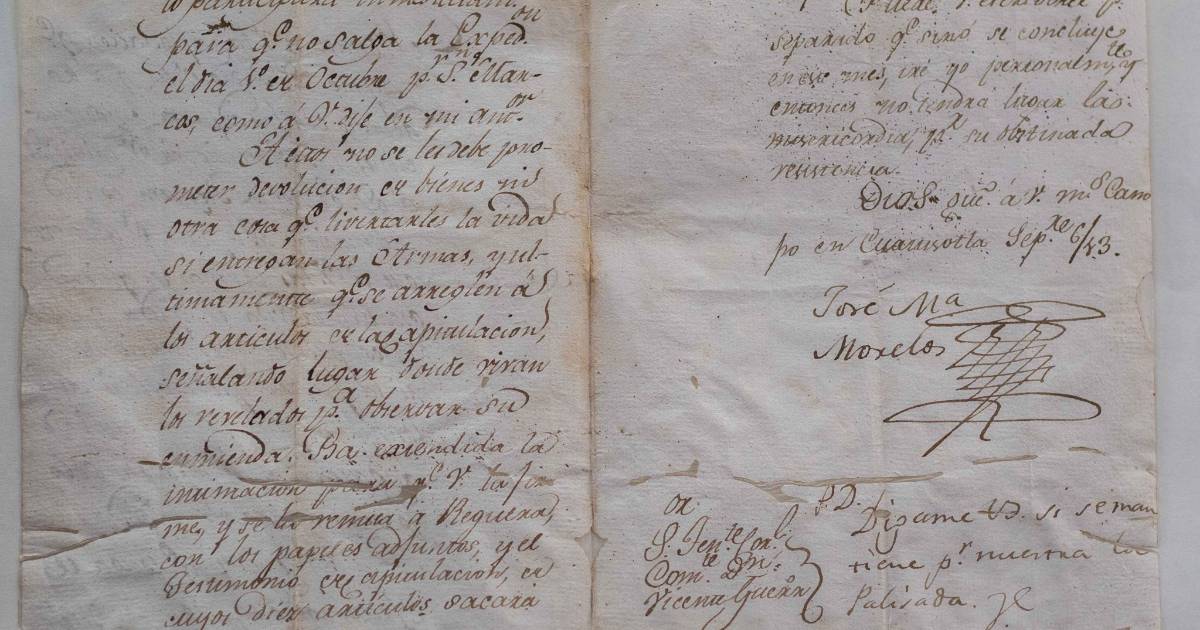 lo participará inmediatam.
para q.e no salga la Exped.on
el dia 1.o de Octubre p.r S.n Mar-
cos, como á V. dije en mi ant.or
A estos no se les debe pro-
meter devolucion de bienes ni
otra cosa q.e livertarles la vida
si entregan las Armas, y ul-
timamente q.e se arreglen á
los articulos de la Capitulacion,
señalando lugar donde vivan
los revelados p.a observar su
enmienda. Ba extendida la
intimacion para q.e V. la fir-
me, y se la remita á Reguera,
con los papeles adjuntos, y el
Testimonio de capitulacion, de
cuyos diez articulos sacará
Puede V.
separado q.e sinó se concluye
en este mes, iré yo personalm.te y
entonces no tendrá lugar la
misericordia, p.r su obstinada
resistencia.
Dios gue. á V. m.s Cam
po en Cuautla Sep.re 6/813.
José M.a
Morelos
S.or
S. Ten.te Cor.l
Com.te D.n
Vicente Guerr.o
P.D.
Digame Vd. si se man
tiene p.r nuestra la
Palisada.